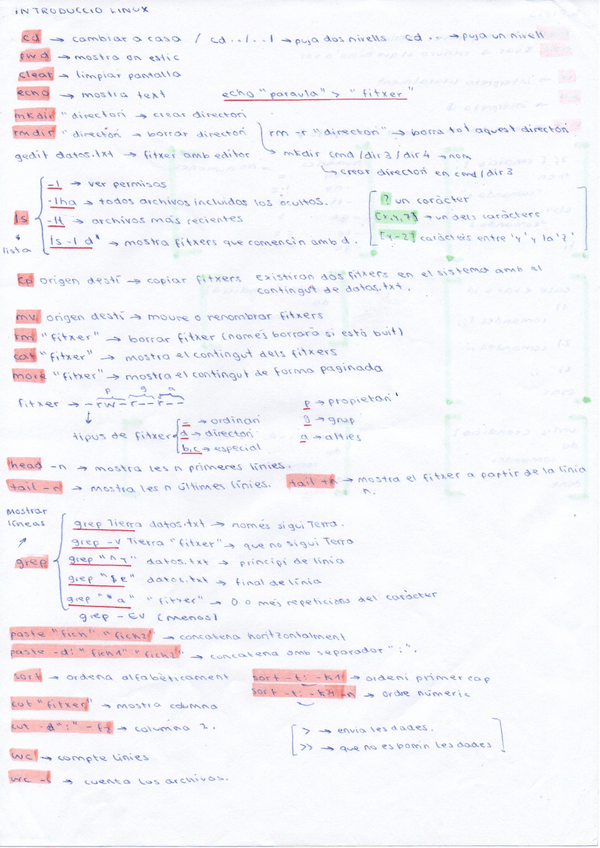 INTRODUCCIO LINUX
cd → cambiar a casa / cd ../../ → puja dos nivells cd .. → puja un nivell
pwd → mostra on estic
clear → limpiar pantalla
echo → mostra text echo "paraula" > "fitxer"
mkdir "directori → crear directori
rmdir "directori → borrar directori rm -r "directori" → borra tot aquest directori
gedit datos.txt → fitxer amb editor mkdir cmd/dir3/dir4 → nom
↳ crear directori en cmd/dir3
-l → ver permisos
-lha → todos archivos incluidos los ocultos. ? un caràcter
ls -lt → archivos más recientes [x,y,z] → un dels caràcters
lista ls -l d* → mostra fitxers que comencin amb d. [y-z] caràcters entre 'y' y la 'z'
cp origen destí → copiar fitxers existiran dos fitxers en el sistema amb el
contingut de datos.txt.
mv origen destí → moure o renombrar fitxers
rm "fitxer" → borrar fitxer (només borrarà si està buit)
cat "fitxer" → mostra el contingut dels fitxers
more "fitxer" → mostra el contingut de forma paginada
p g a
fitxer → -rw-r--r-- p → propietari
- → ordinari g → grup
tipus de fitxer d → directori a → altres
b,c → especial
head -n → mostra les n primeres línies.
tail -n → mostra les n últimes línies. tail +n → mostra el fitxer a partir de la línia
n.
Mostrar
líneas
grep Tierra datos.txt → només sigui Terra.
grep -v Tierra "fitxer" → que no sigui Terra
grep grep "^ datos.txt → principi de línia
grep "$e" datos.txt → final de línia
grep "*a" "fitxer" → 0 o més repeticions del caràcter
grep -EV (menos)
paste "fich" "fich2" → concatena horitzontalment
paste -d: "fich1" "fich2" → concatena amb separador ":".
sort → ordena alfabèticament sort -t: -k1 → ordeni primer cap
sort -t: -k4 -n → ordre númeric
cut "fitxer" → mostra columna
cut -d":" -f2 → columna 2. > → envia les dades.
>> → que no es borrin les dades
wc → compte línies.
wc -l → cuenta los archivos.